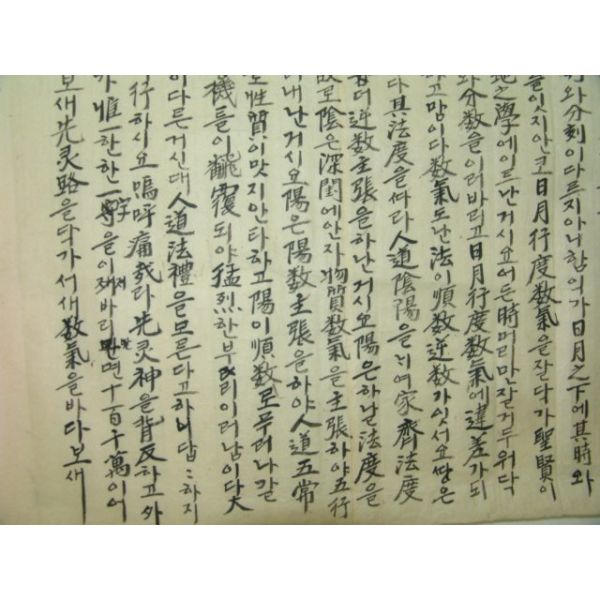 와 分刻이다르지아니함의가日月之下에其時와
을잇지안코日月行度数氣을잘다가聖賢이
地之學에이트난거시요어든時머리만잘거두워닥
와分数을이러바리고日月行度数氣에違差가되
다고맘이다数氣도난法이順数逆数가잇서요땅은
다其法度을따라人道陰陽을 여家齊法度
逆数主張을하난거시요陽은하날法度을
故로陰은深閨에안자物質数氣을主張하야五行
내난거시요陽은陽数主張을하야人道五常
性質이맛지안타하고陽이順数로푸러나갈
機들이飜覆되야猛烈한부 리이러남이다大
이다른거신대人道法禮을모른다고하니답〻하지
行하시요嗚呼痛哉라先灵神을背反하고外
가惟一한한一字을이저바리면十百千萬이어
보새先灵路을닥가서새数氣을바다보새